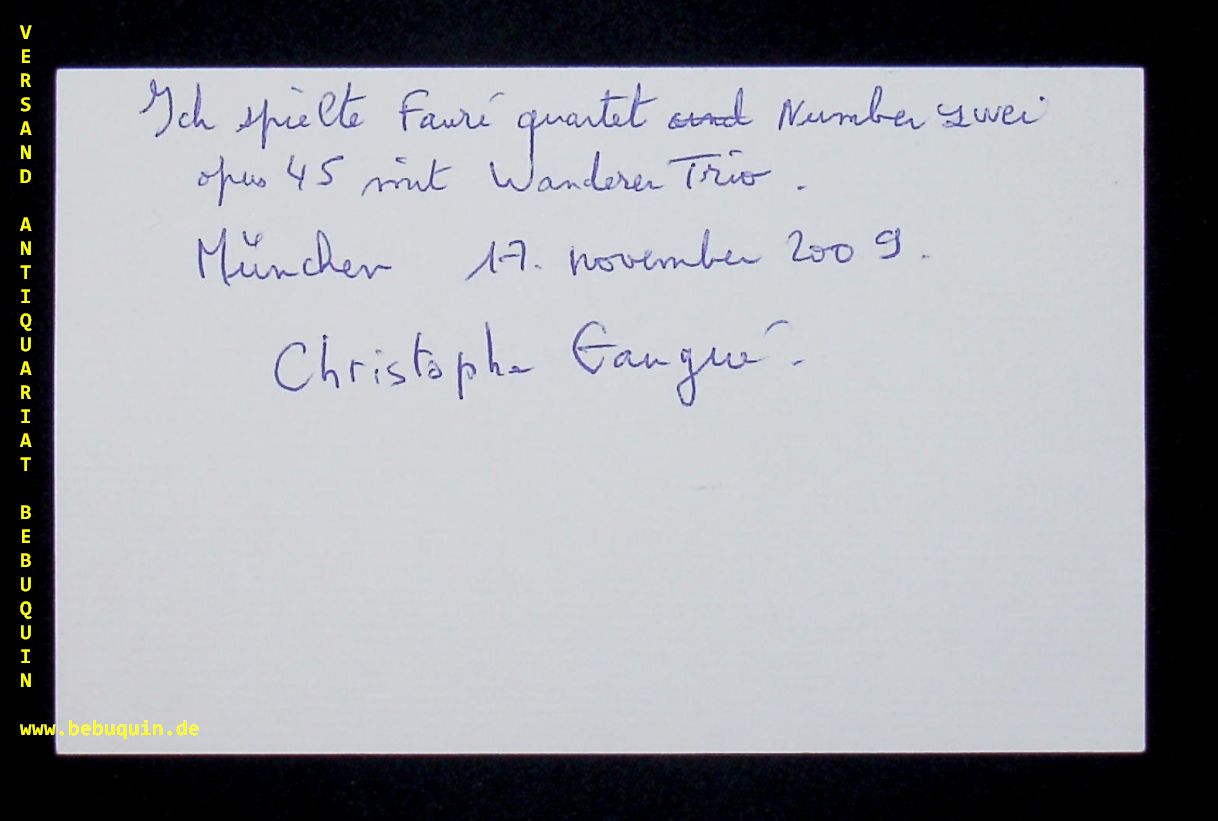 VERSAND ANTIQUARIAT BEBUQUIN
Ich spielte Fauré quartet und Number zwei
opus 45 mit Wanderer Trio.
München 17. november 2009.
Christophe Gaugué.
www.bebuquin.de